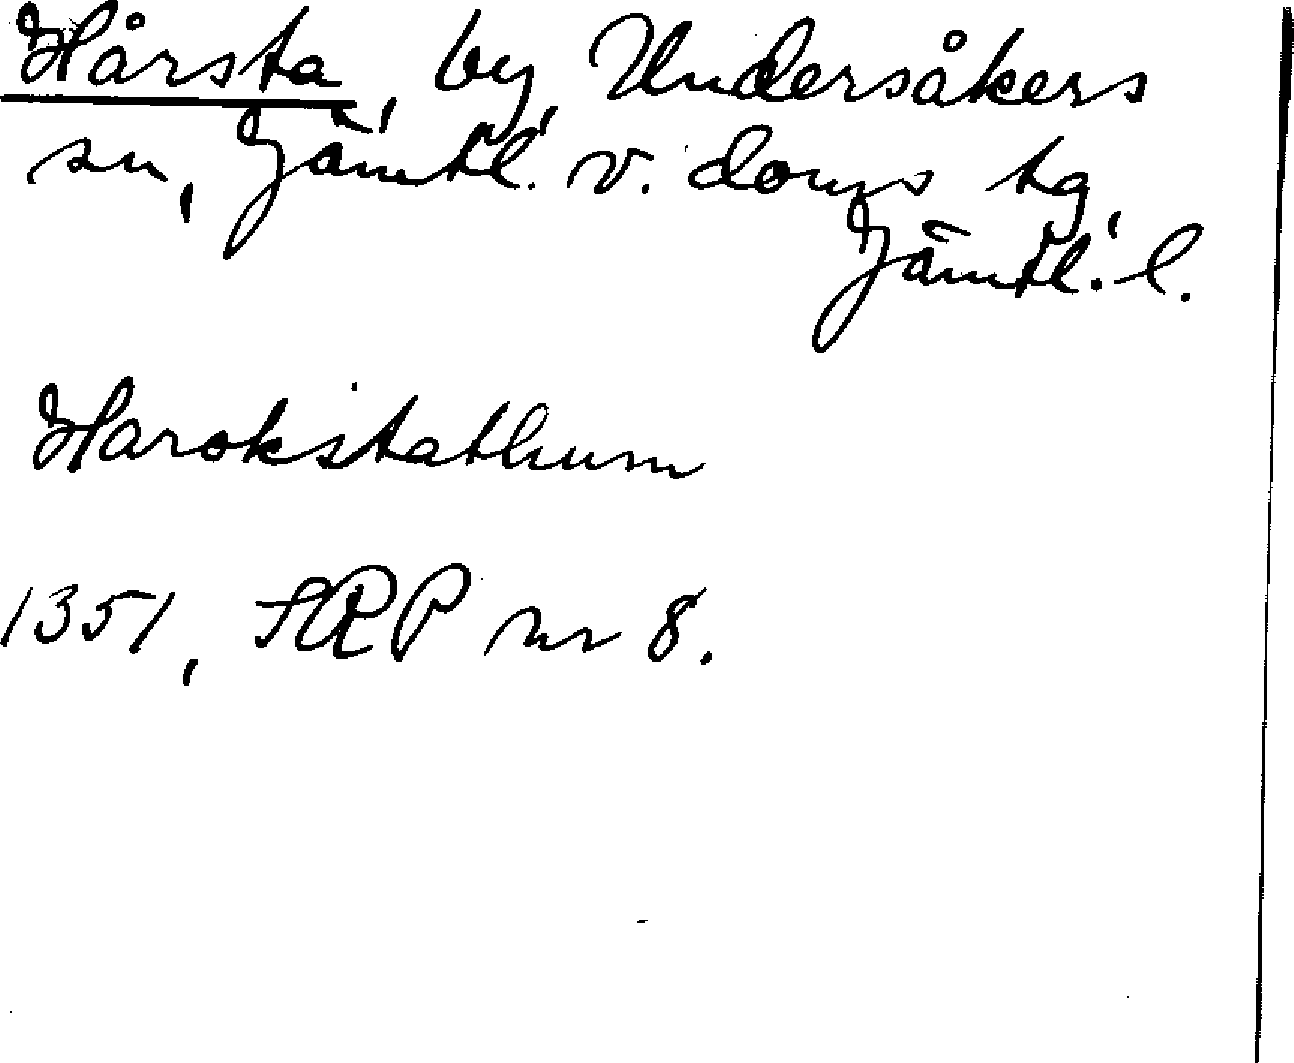 Hårsta, by, Undersåkers
sn, Jämtl. v. doms tg,
Jämtl. l.
Harokstathum
1351, SRP nr 8.